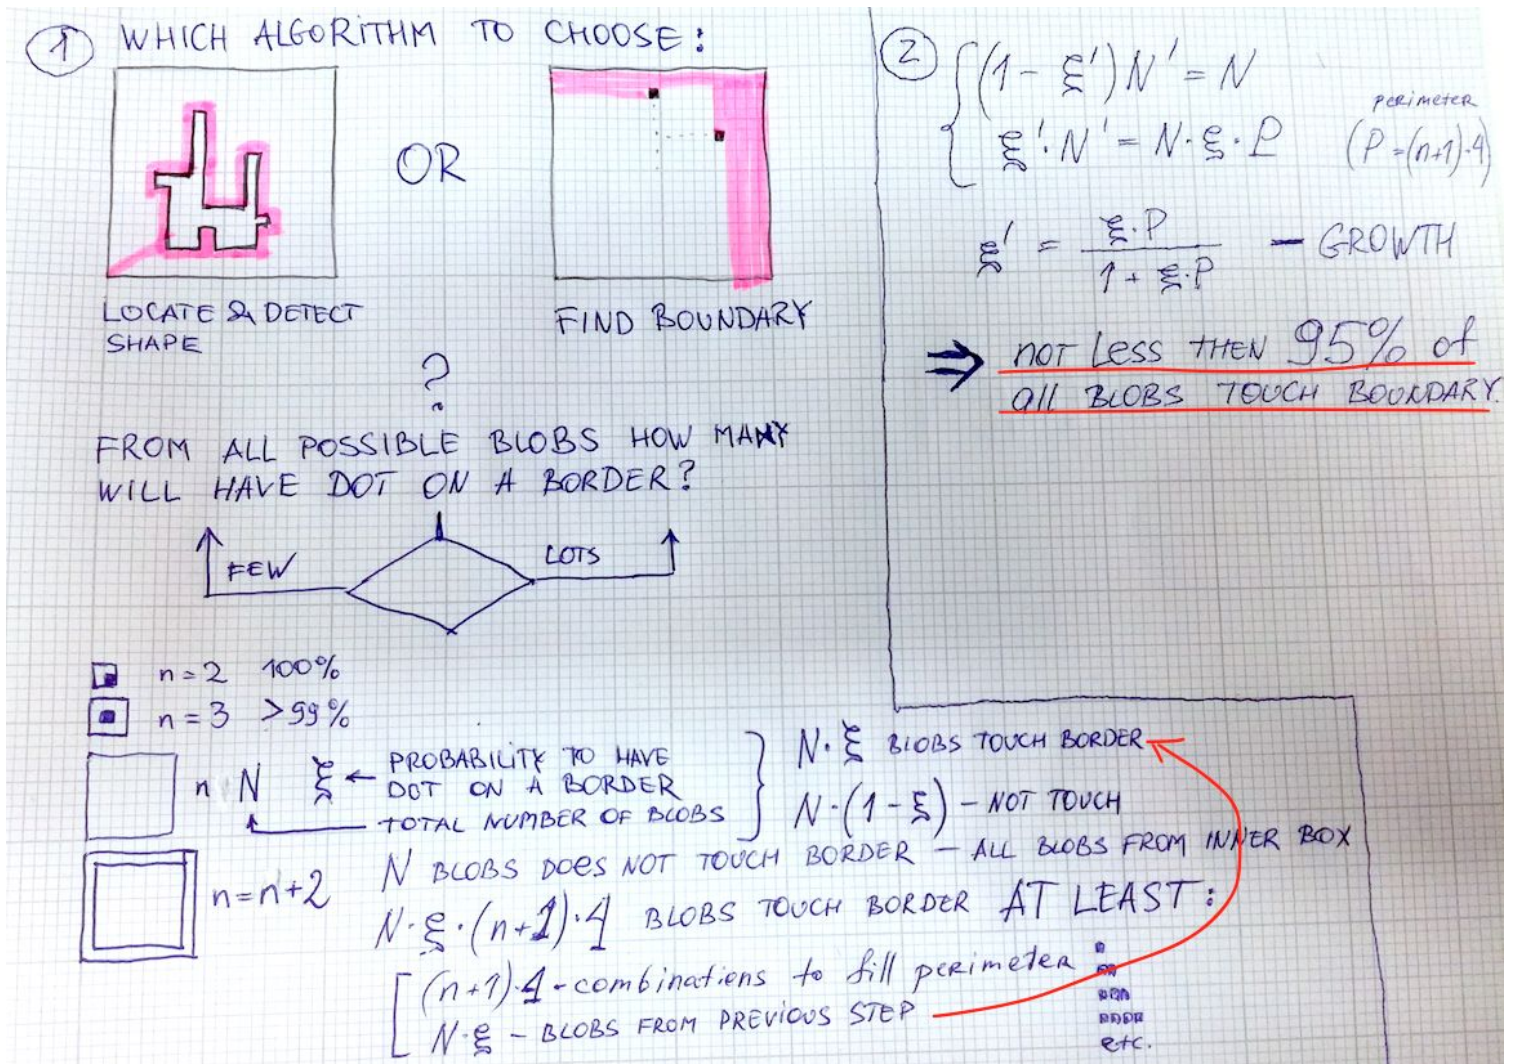 1 WHICH ALGORITHM TO CHOOSE:
OR
LOCATE & DETECT
SHAPE
FIND BOUNDARY
?
FROM ALL POSSIBLE BLOBS HOW MANY
WILL HAVE DOT ON A BORDER?
FEW
LOTS
n = 2 100%
n = 3 >99%
n N ξ ← PROBABILITY TO HAVE
DOT ON A BORDER
TOTAL NUMBER OF BLOBS
N·ξ BLOBS TOUCH BORDER
N·(1-ξ) - NOT TOUCH
N BLOBS DOES NOT TOUCH BORDER - ALL BLOBS FROM INNER BOX
n=n+2
N·ξ·(n+1)·4 BLOBS TOUCH BORDER AT LEAST:
(n+1)·4 - combinations to fill perimeter
N·ξ - BLOBS FROM PREVIOUS STEP
etc.
2 (1-ξ')N' = N
ξ'·N' = N·ξ·P
perimeter
(P=(n+1)·4)
ξ' = ξ·P / 1+ξ·P - GROWTH
⇒ NOT Less THEN 95% of
all BLOBS TOUCH BOUNDARY.